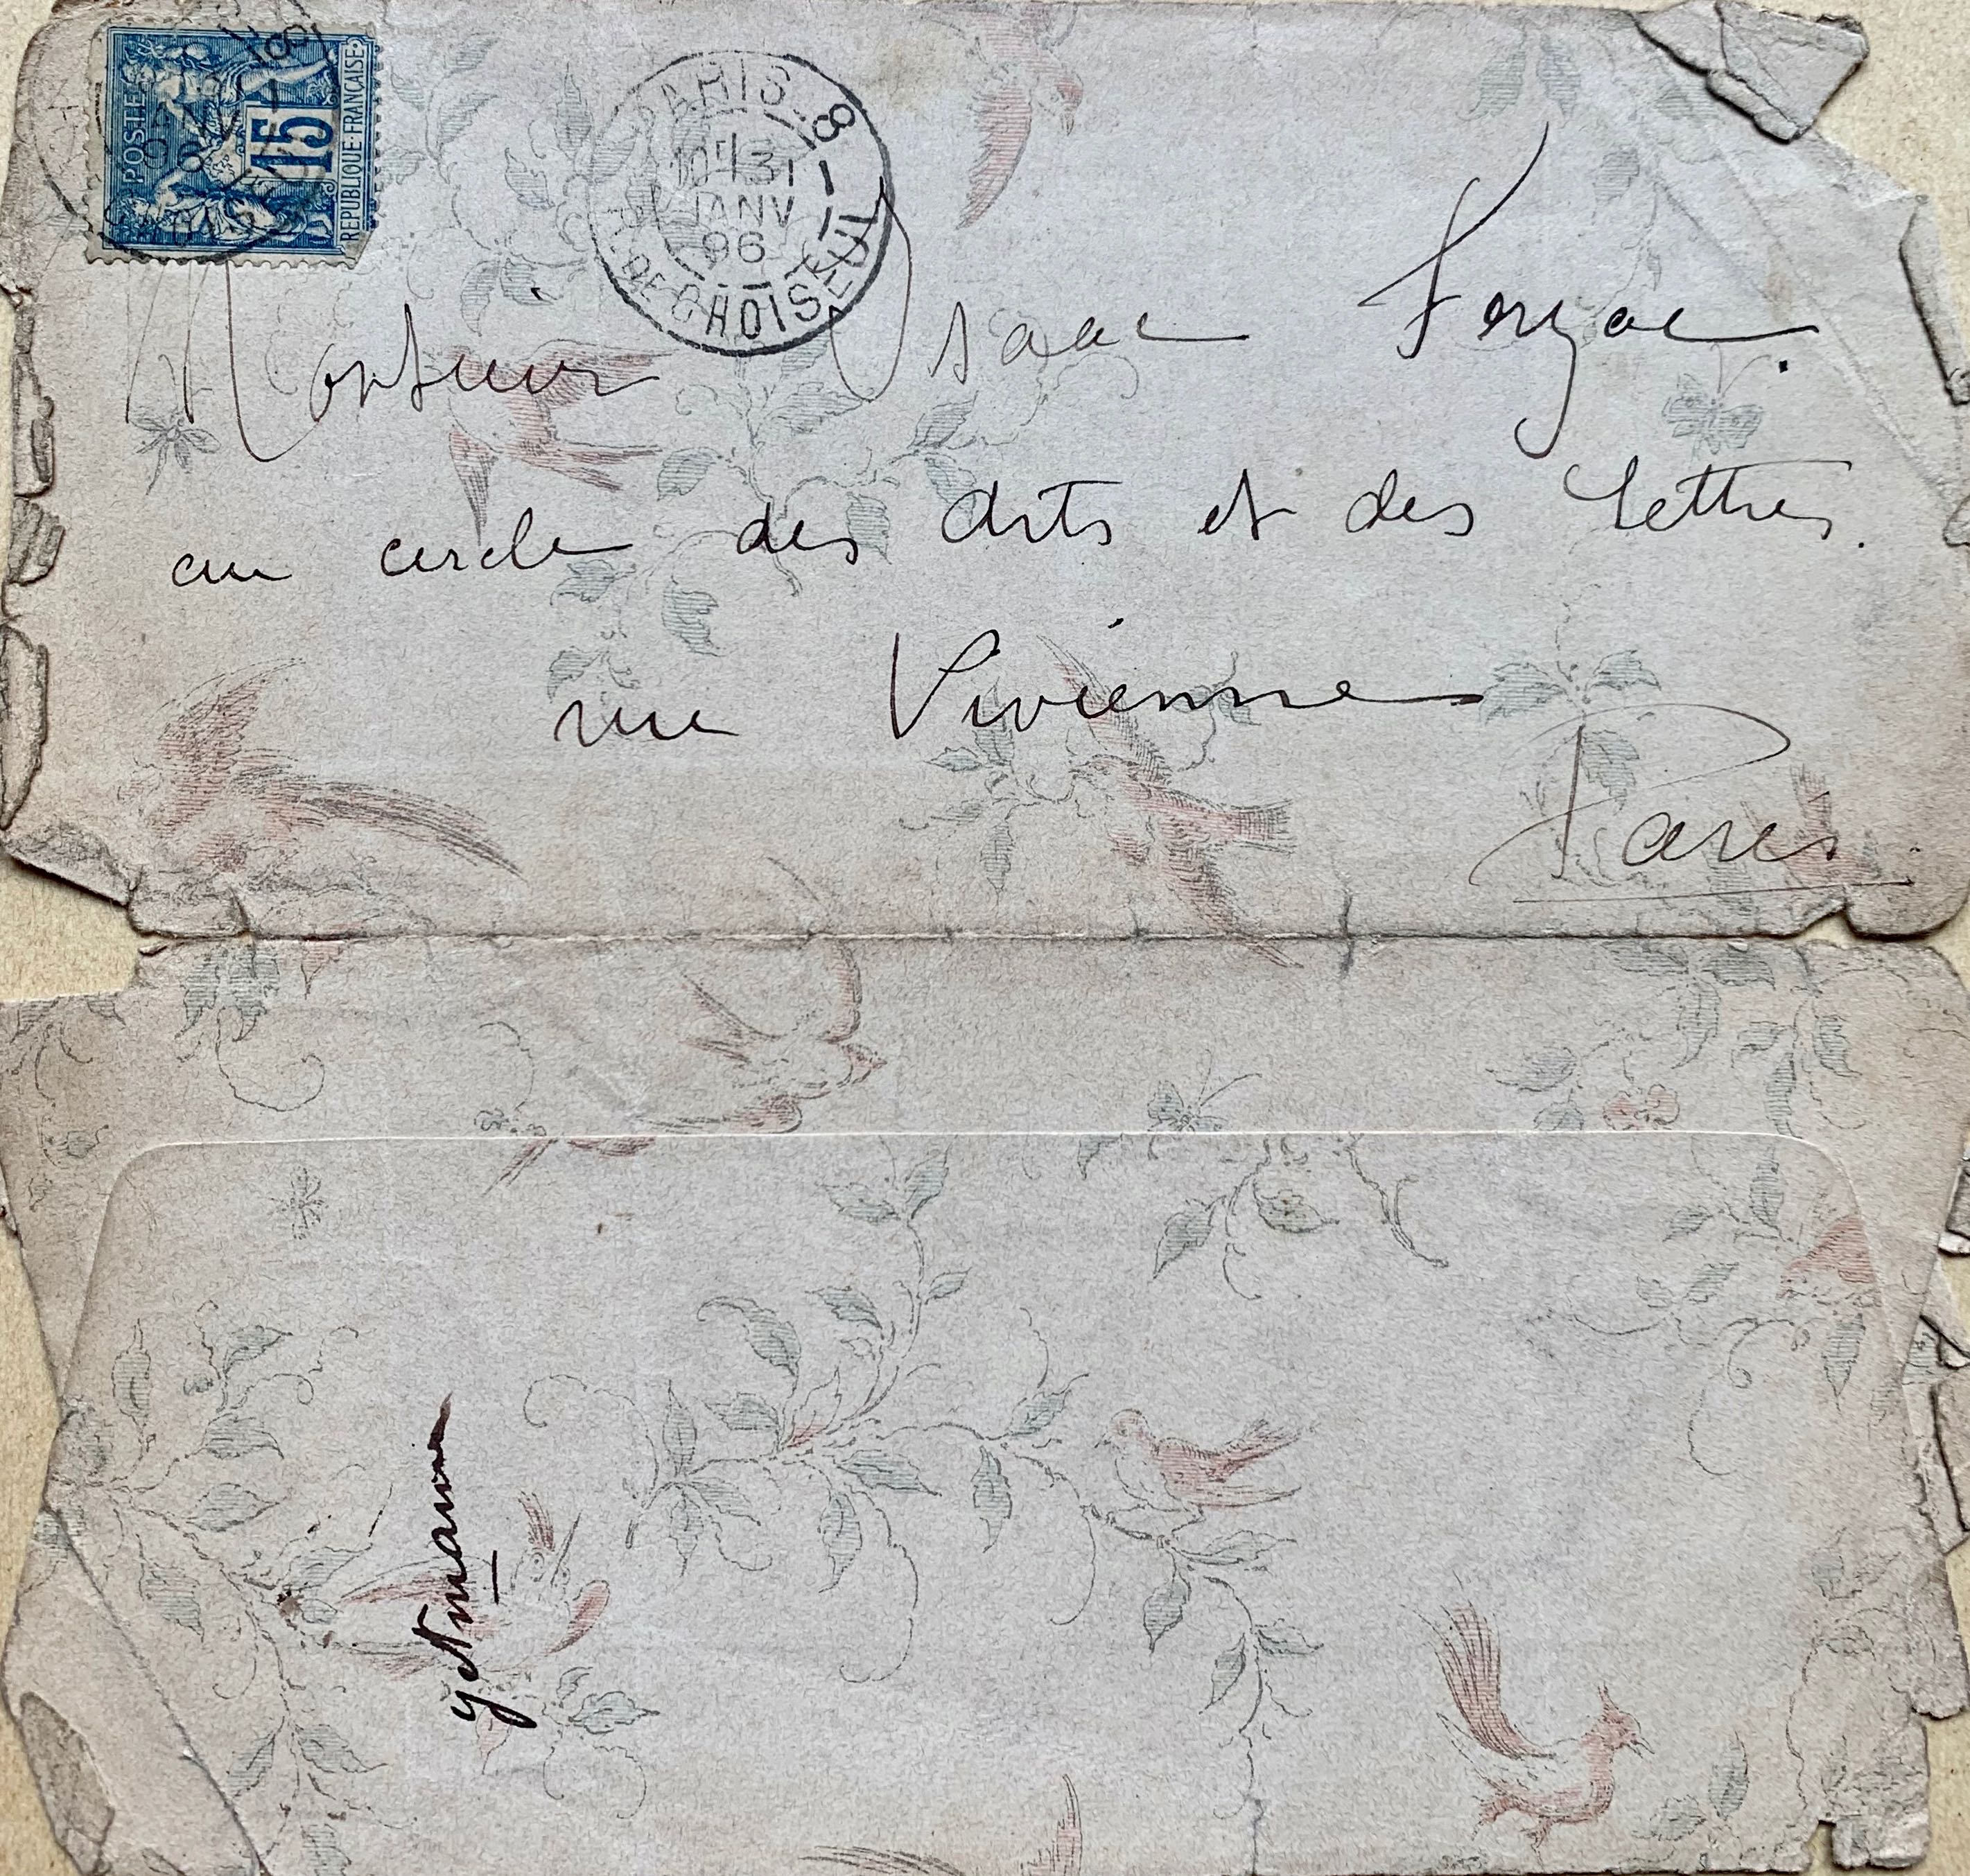 POSTES
15
REPUBLIQUE·FRANÇAISE
PARIS_8
10E 31
JANV
96
R. DE CHOISEUL
Monsieur Isaac
au cercle des Arts et des lettres.
rue Vivienne
Paris.